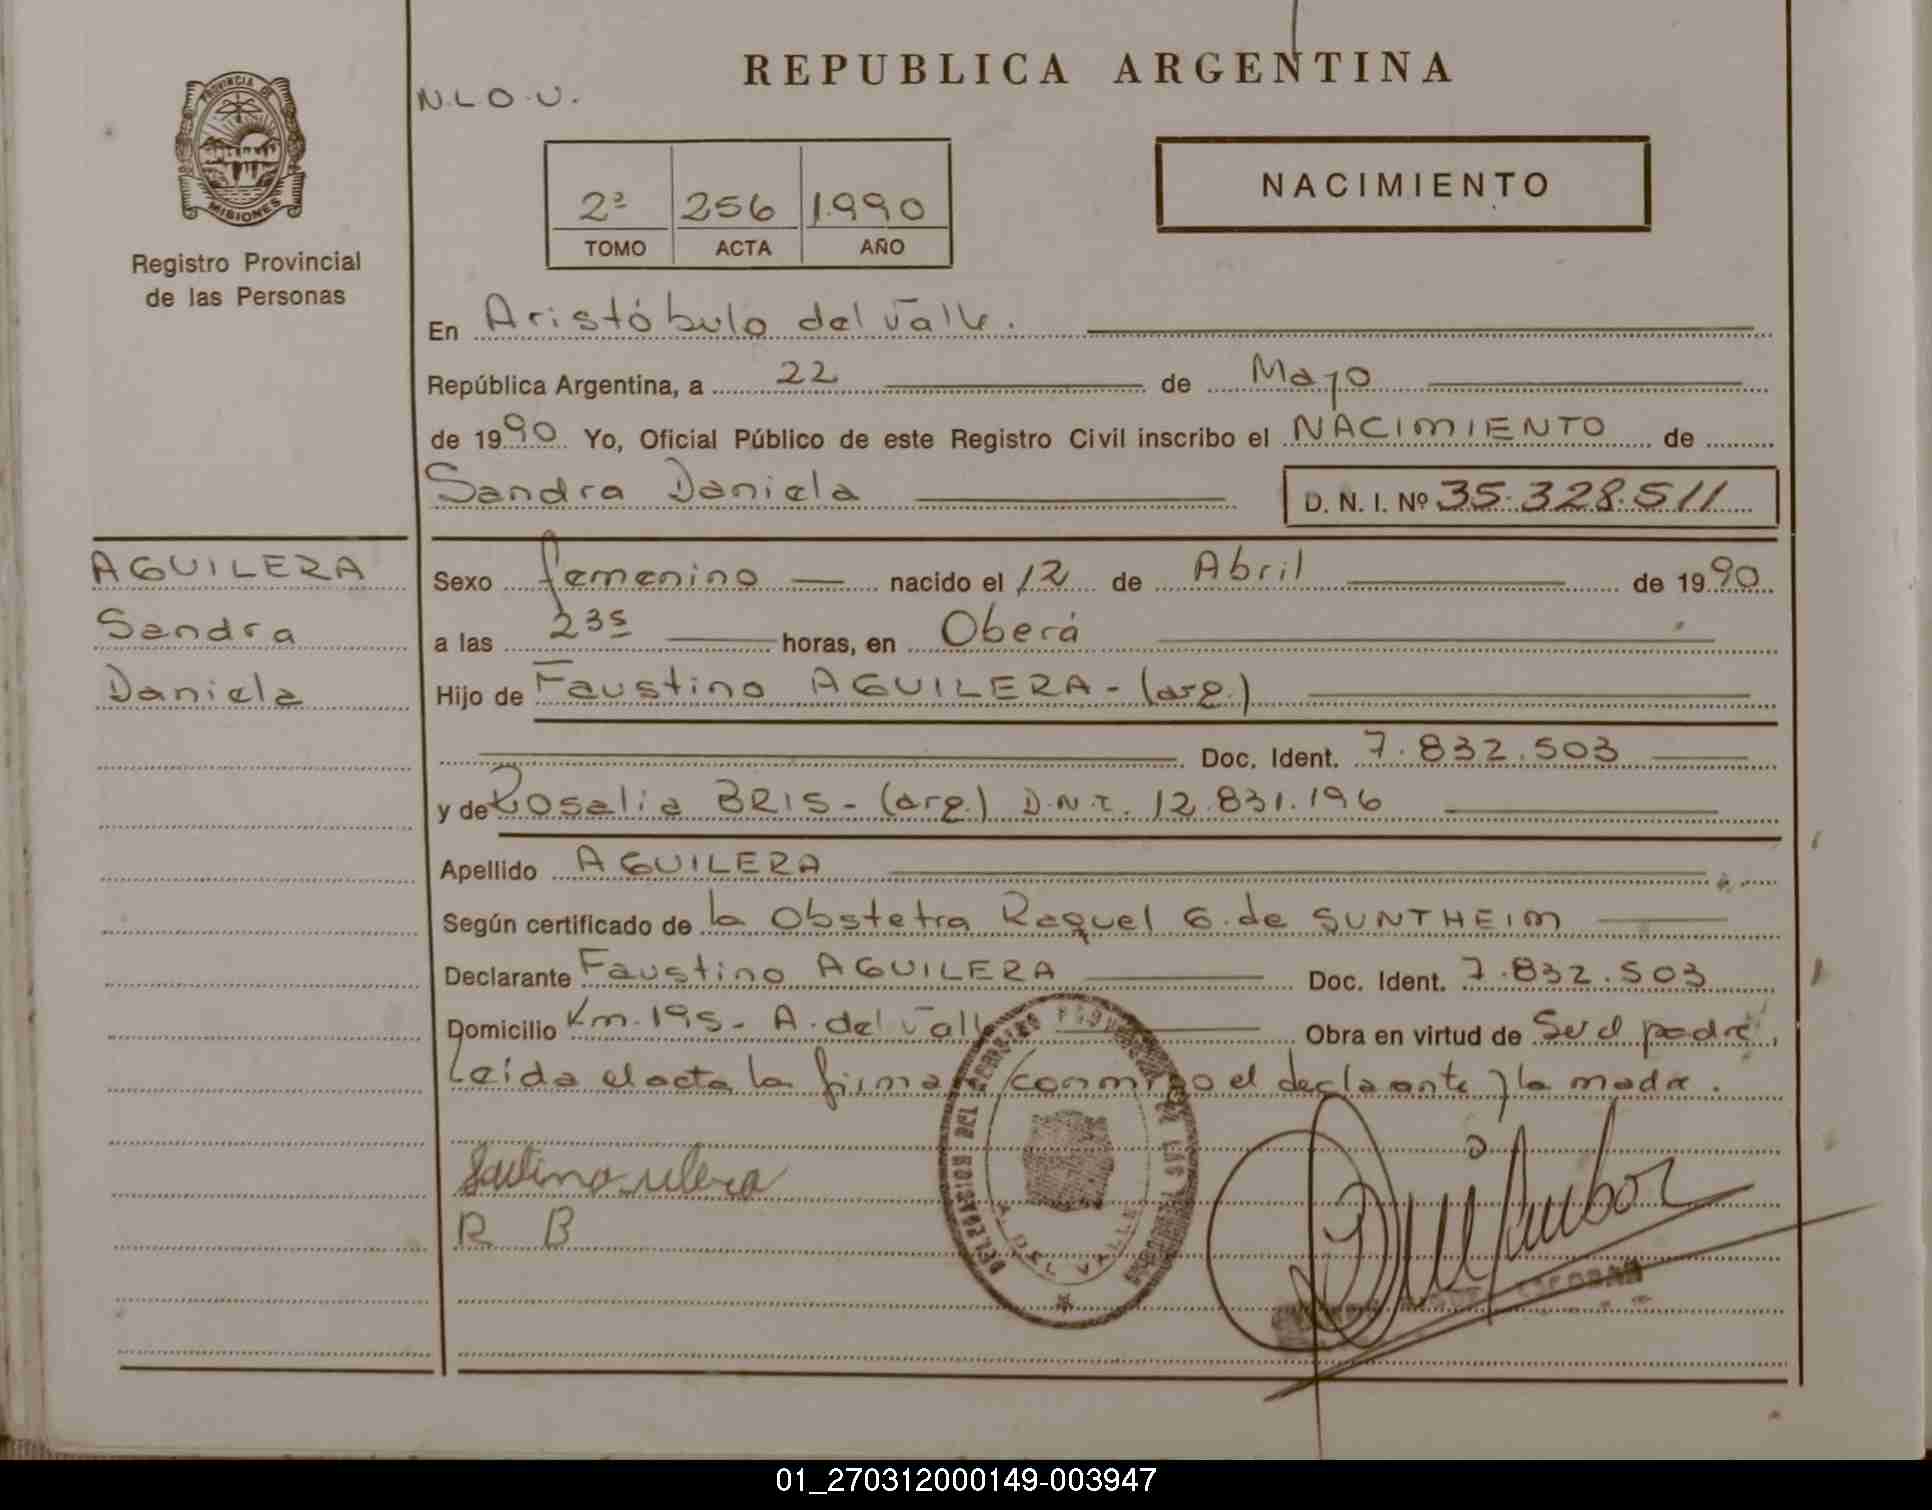 PROVINCIA DE
MISIONES
Registro Provincial
de las Personas
N.L.O.U.
REPUBLICA ARGENTINA
2º 256 1.990
TOMO ACTA AÑO
NACIMIENTO
En Aristóbulo del Valle.
República Argentina, a 22 de Mayo
de 1990 Yo, Oficial Público de este Registro Civil inscribo el NACIMIENTO de
Sandra Daniela D. N. I. Nº 35.328.511
AGUILERA
Sandra
Daniela
Sexo femenino nacido el 12 de Abril de 1990
a las 23 horas, en Oberá
Hijo de Faustino AGUILERA - (arg.)
Doc. Ident. 7.832.503
y de Rosalia BRIS - (arg.) D.N.I. 12.831.196
Apellido AGUILERA
Según certificado de la Obstetra Raquel G. de SUNTHEIM
Declarante Faustino AGUILERA Doc. Ident. 7.832.503
Domicilio Km. 195 - A. del Valle Obra en virtud de Ser el padre,
Leída el acta la firma conmigo el declarante y la madre.
R B
DELEGACION DEL REGISTRO PROVINCIAL DE LAS PERSONAS
A. DEL VALLE
ESCOBAR
01_270312000149-003947